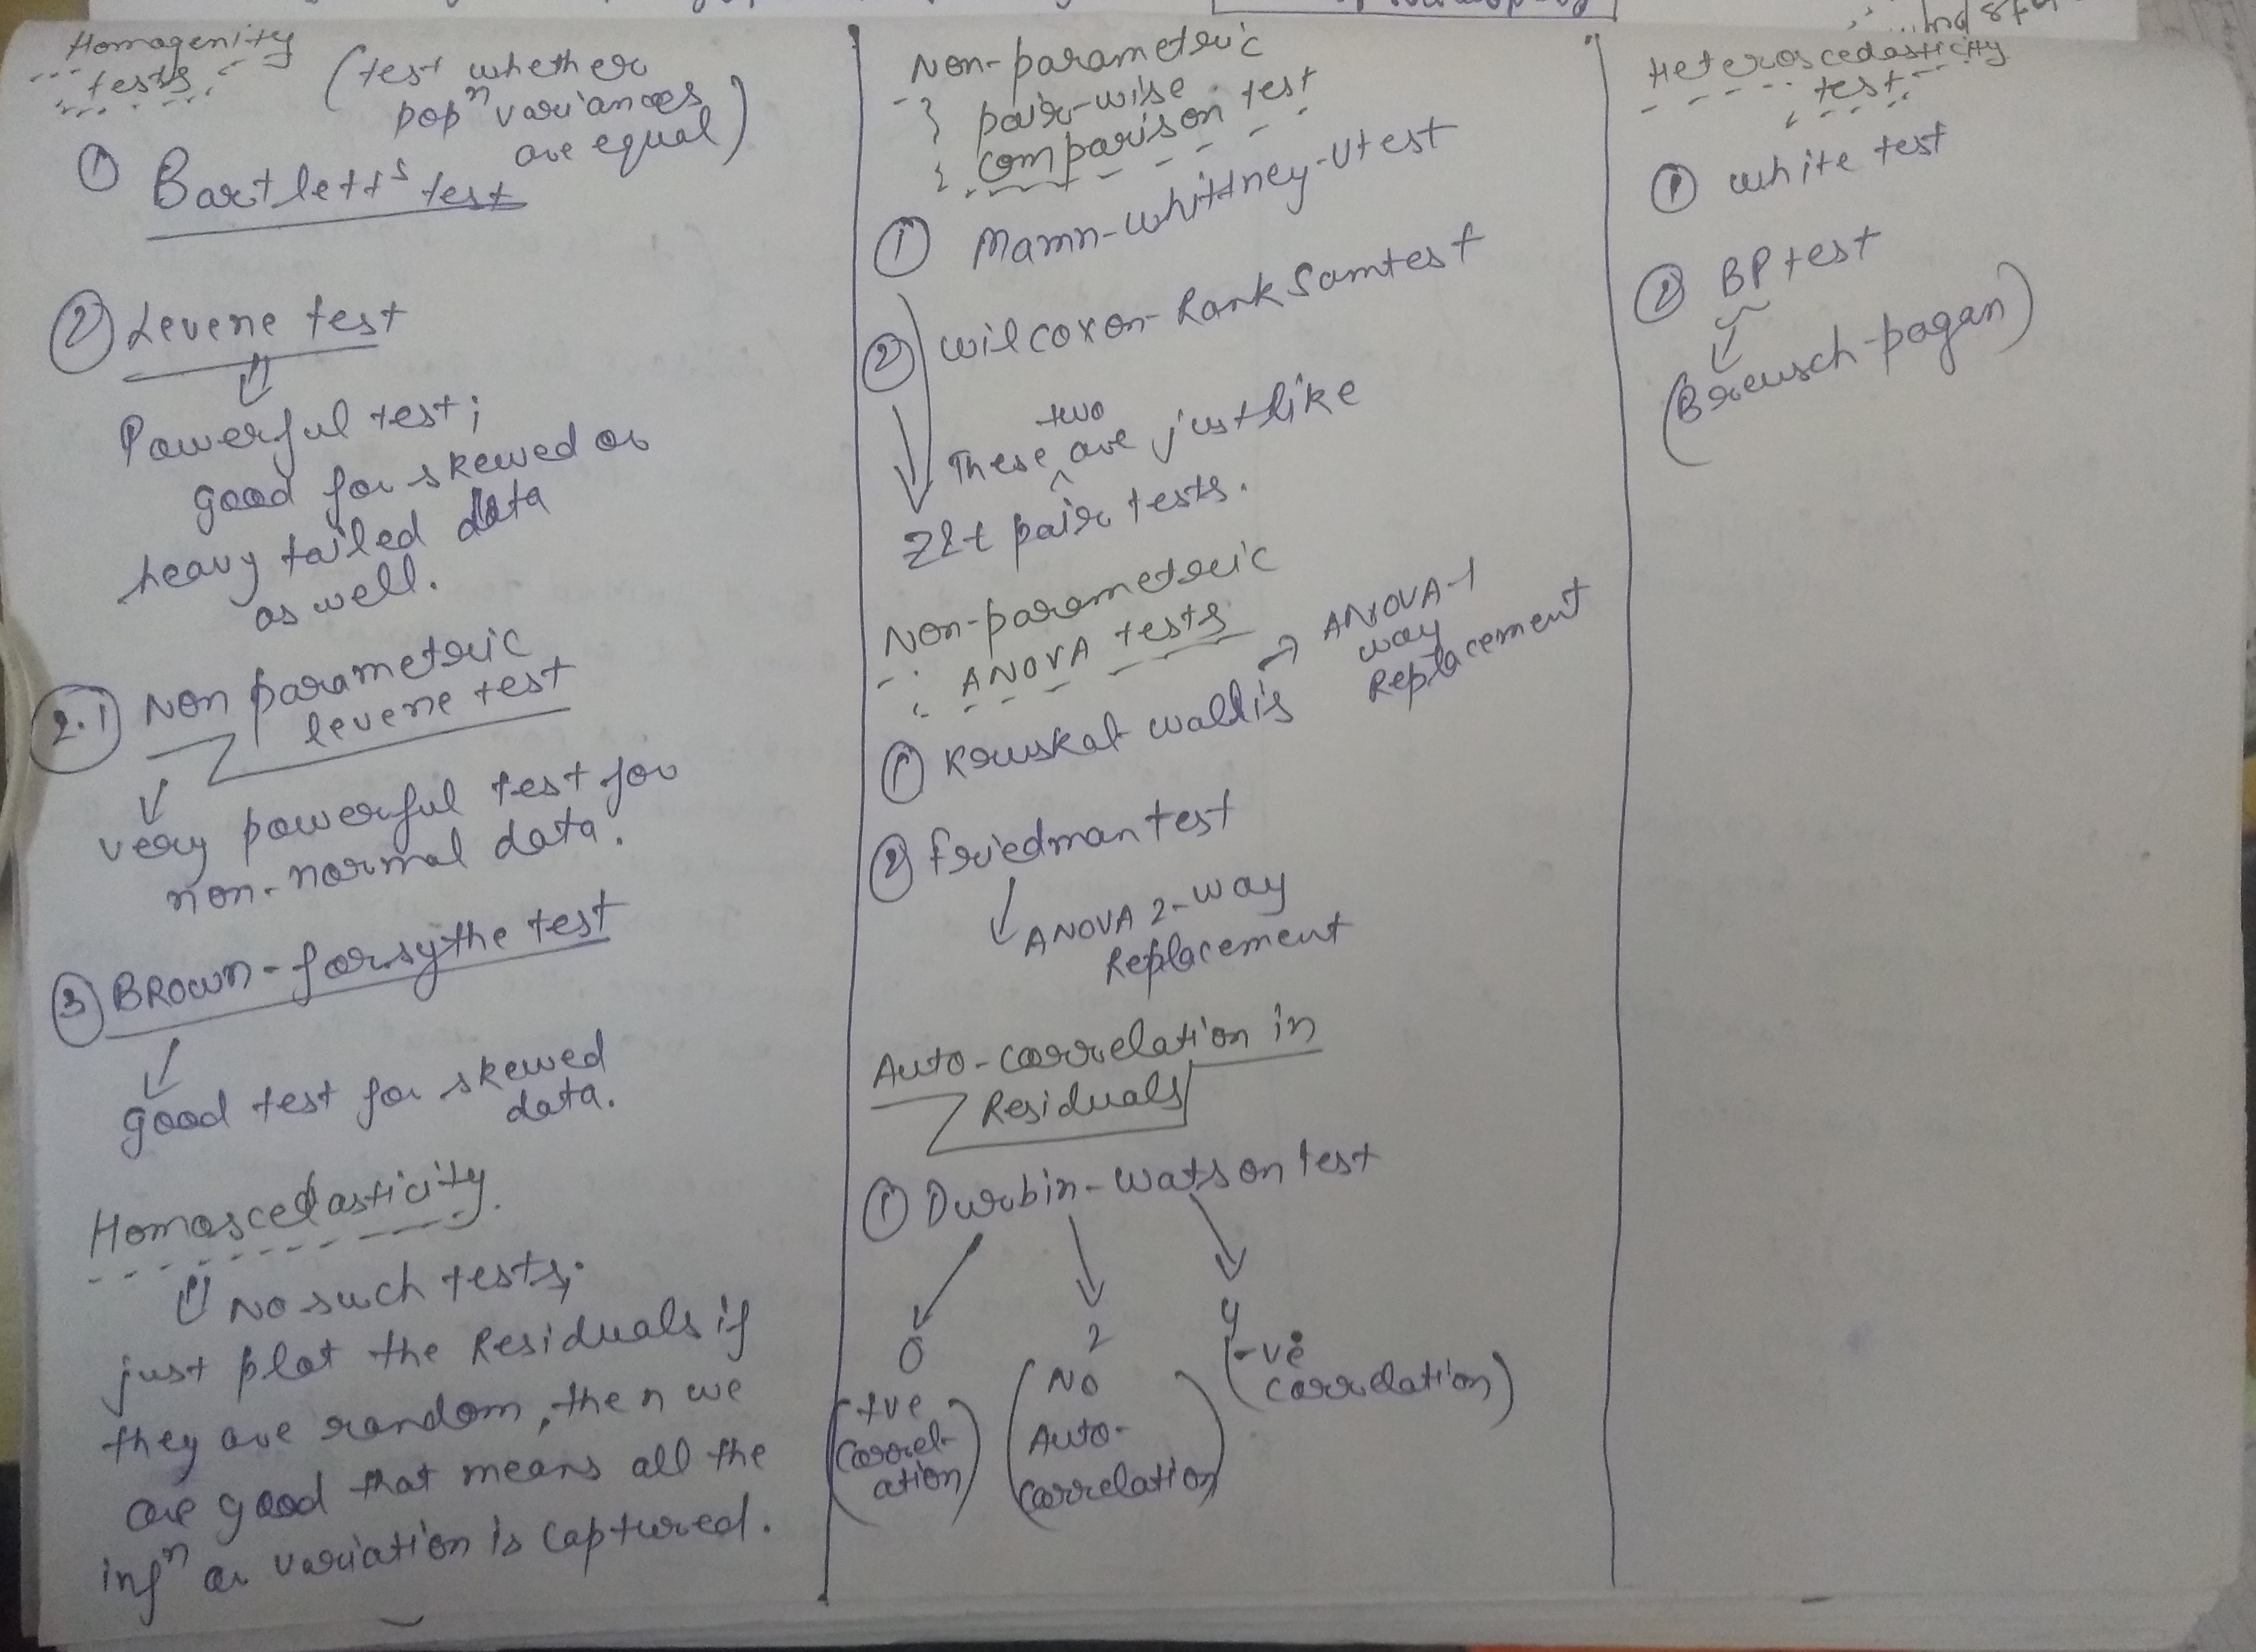 Homogenity
tests
(test whether
popⁿ variances
are equal)
① Bartlett's test
② Levene test
Powerful test;
good for skewed or
heavy tailed data
as well.
2.1 Non parametric
levene test
very powerful test for
non-normal data.
③ BROWN-forsythe test
good test for skewed
data.
Homoscedasticity
No such tests;
just plot the Residuals if
they are random, then we
are good that means all the
infⁿ or variation is captured.
Non-parametric
pair-wise
comparison test
① Mann-whittney-U test
② wilcoxon-Rank Sum test
two
These ^ are just like
Z & t pair tests.
Non-parametric
ANOVA tests
① Kruskal wallis → ANOVA-1
way
Replacement
② friedman test
ANOVA 2-way
Replacement
Auto-correlation in
Residuals
① Durbin-Watson test
0 2 4
(+ve
correl-
ation)
(No
Auto-
correlation)
(-ve
correlation)
Heteroscedasticity
test
① white test
② BP test
(Breusch-pagan)